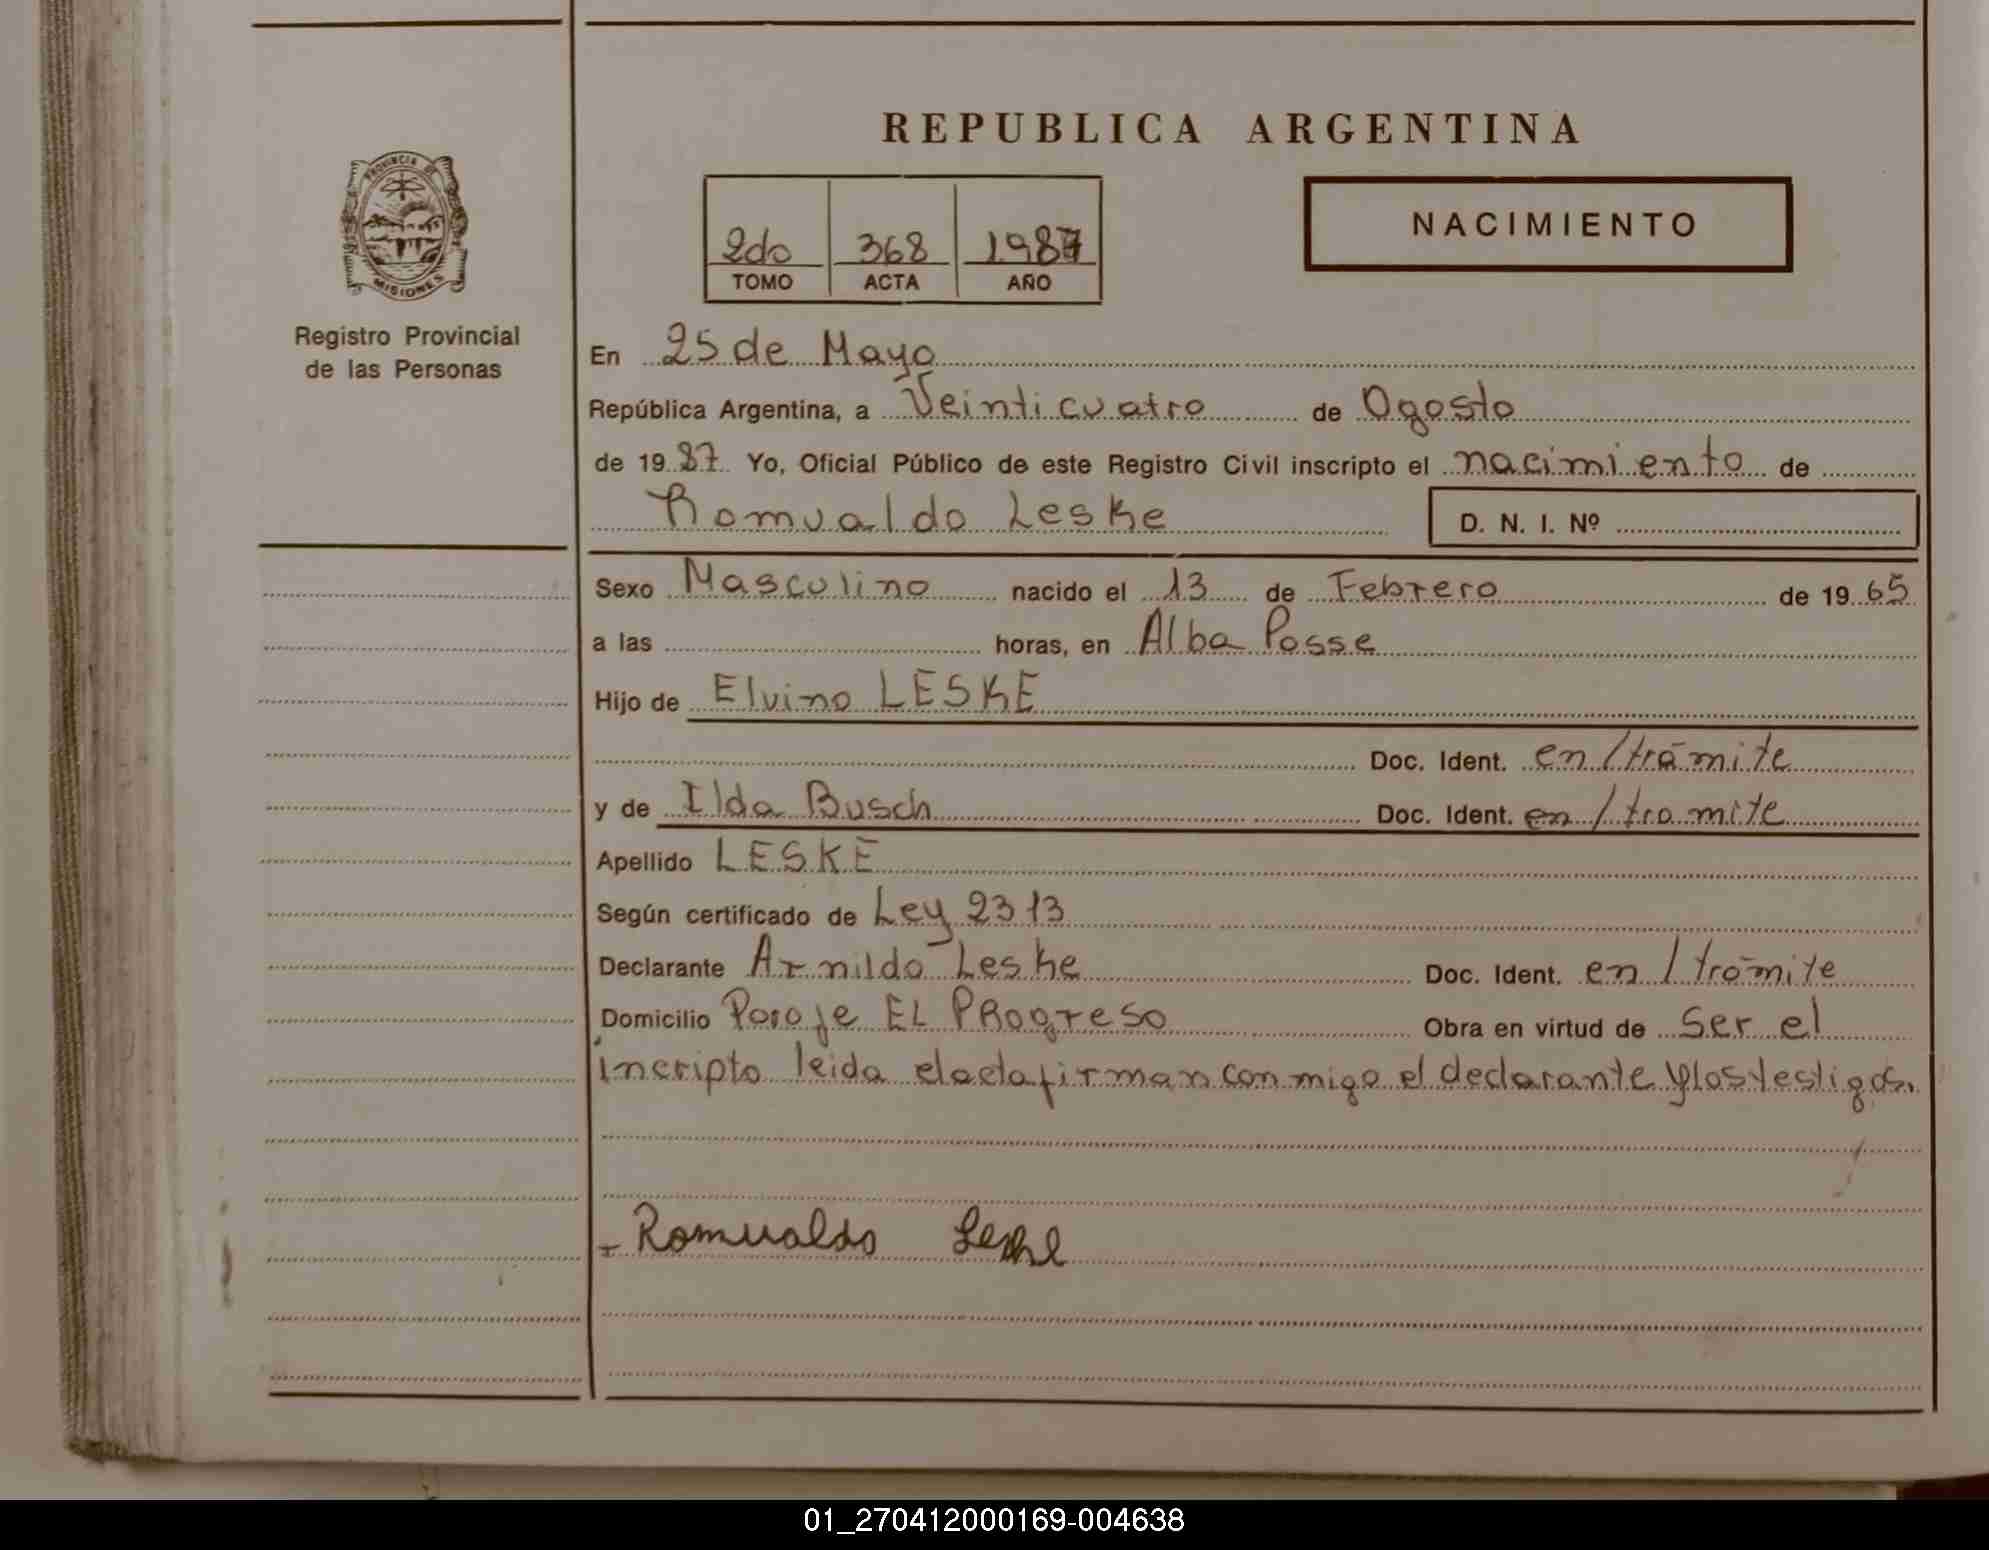 REPUBLICA ARGENTINA
PROVINCIA DE
MISIONES
Registro Provincial
de las Personas
2do 368 1987
TOMO ACTA AÑO
NACIMIENTO
En 25 de Mayo
República Argentina, a Veinticuatro de Agosto
de 19 87 Yo, Oficial Público de este Registro Civil inscripto el nacimiento de
Romualdo Leske D. N. I. Nº
Sexo Masculino nacido el 13 de Febrero de 19 65
a las horas, en Alba Posse
Hijo de Elvino LESKE
Doc. Ident. en/trámite
y de Ilda Busch Doc. Ident. en/tramite
Apellido LESKE
Según certificado de Ley 2313
Declarante Arnildo Leske Doc. Ident. en/trámite
Domicilio Paraje EL PRogreso Obra en virtud de ser el
incripto leida elacta firman conmigo el declarante y los testigos.
Romualdo Leske
01_270412000169-004638